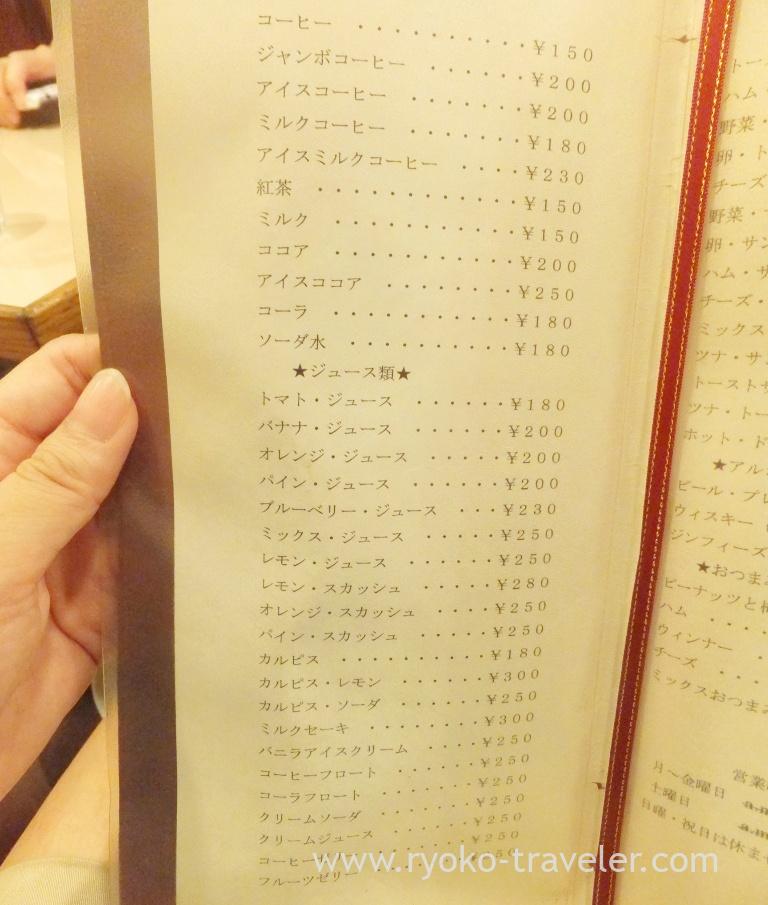 コーヒー ・・・・・・・・・・¥150
ジャンボコーヒー ・・・・・・¥200
アイスコーヒー ・・・・・・・¥200
ミルクコーヒー ・・・・・・・¥180
アイスミルクコーヒー ・・・・¥230
紅茶 ・・・・・・・・・・・・¥150
ミルク ・・・・・・・・・・・¥150
ココア ・・・・・・・・・・・¥200
アイスココア ・・・・・・・・¥250
コーラ ・・・・・・・・・・・¥180
ソーダ水 ・・・・・・・・・・¥180
★ジュース類★
トマト・ジュース ・・・・・・¥180
バナナ・ジュース ・・・・・・¥200
オレンジ・ジュース ・・・・・¥200
パイン・ジュース ・・・・・・¥200
ブルーベリー・ジュース ・・・¥230
ミックス・ジュース ・・・・・¥250
レモン・ジュース ・・・・・・¥250
レモン・スカッシュ ・・・・・¥280
オレンジ・スカッシュ ・・・・¥250
パイン・スカッシュ ・・・・・¥250
カルピス ・・・・・・・・・・¥180
カルピス・レモン ・・・・・・¥300
カルピス・ソーダ ・・・・・・¥250
ミルクセーキ ・・・・・・・・¥300
バニラアイスクリーム ・・・・¥250
コーヒーフロート ・・・・・・¥250
コーラフロート ・・・・・・・¥250
クリームソーダ ・・・・・・・¥250
クリームジュース ・・・・・・¥250
コーヒー ・・・・・・¥250
フルーツゼリー
トー
ハム・
野菜・
卵・ト
チーズ
野菜・
卵・サン
ハム・サ
チーズ・
ミックス
ツナ・サ
トーストサ
ツナ・トー
ホット・ド
★アル
ビール・プレ
ウィスキー
ジンフィーズ
★おつまみ
ピーナッツと柿
ハム ・・・・
ウィンナー
チーズ ・・・
ミックスおつまみ
営業
月～金曜日 a.m
土曜日 a.m
日曜・祝日は休ませ
www.ryoko-traveler.com